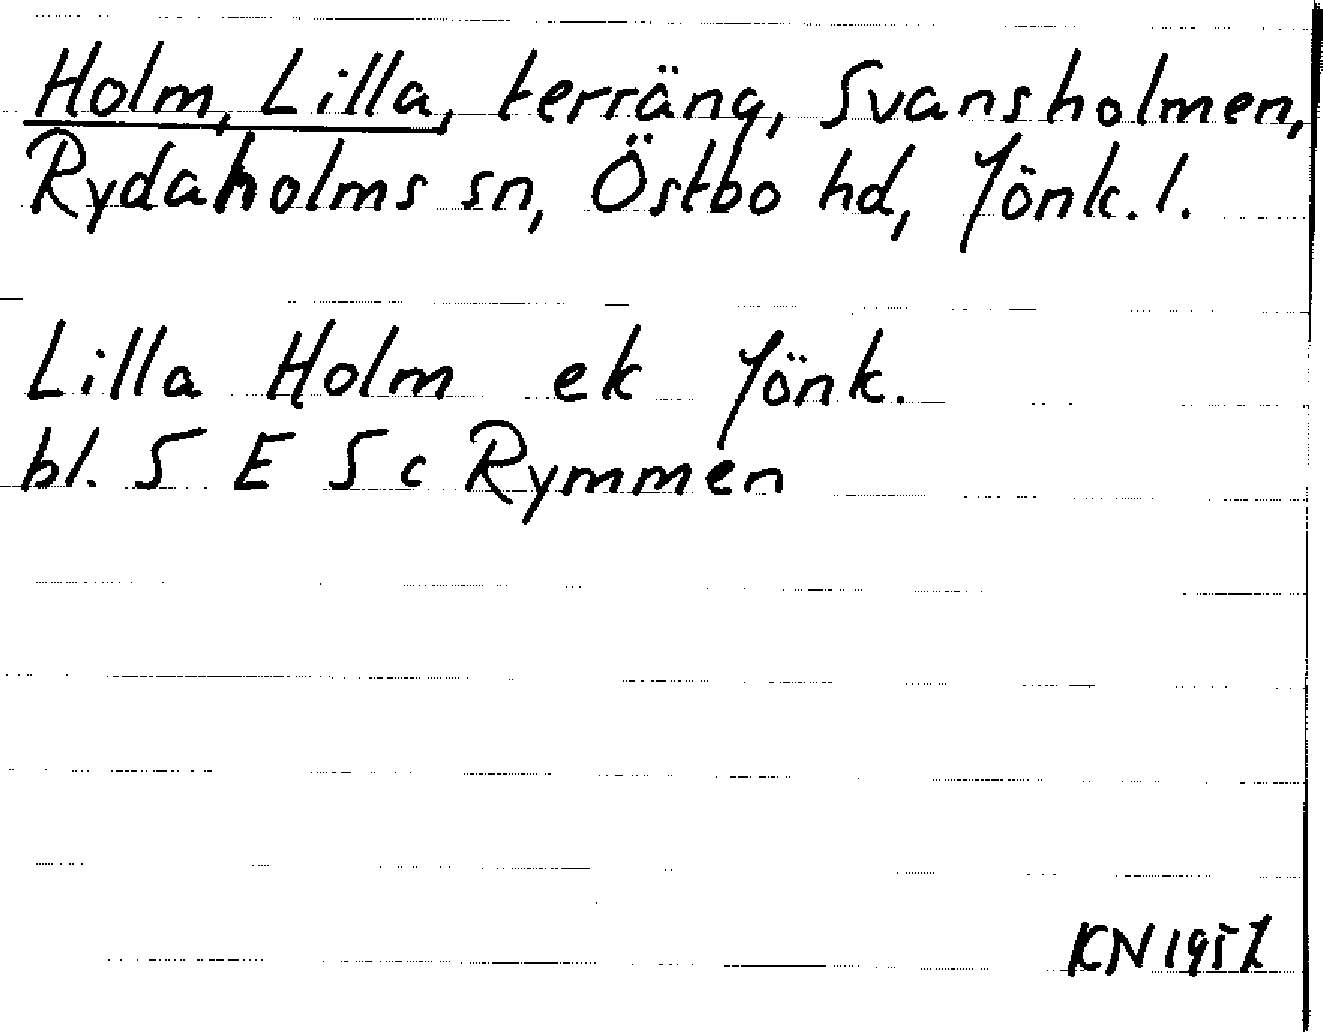 Holm, Lilla, terräng, Svansholmen,
Rydaholms sn, Östbo hd, Jönk. l.
Lilla Holm ek Jönk.
bl. 5 E 5 c Rymmen
KN 1957